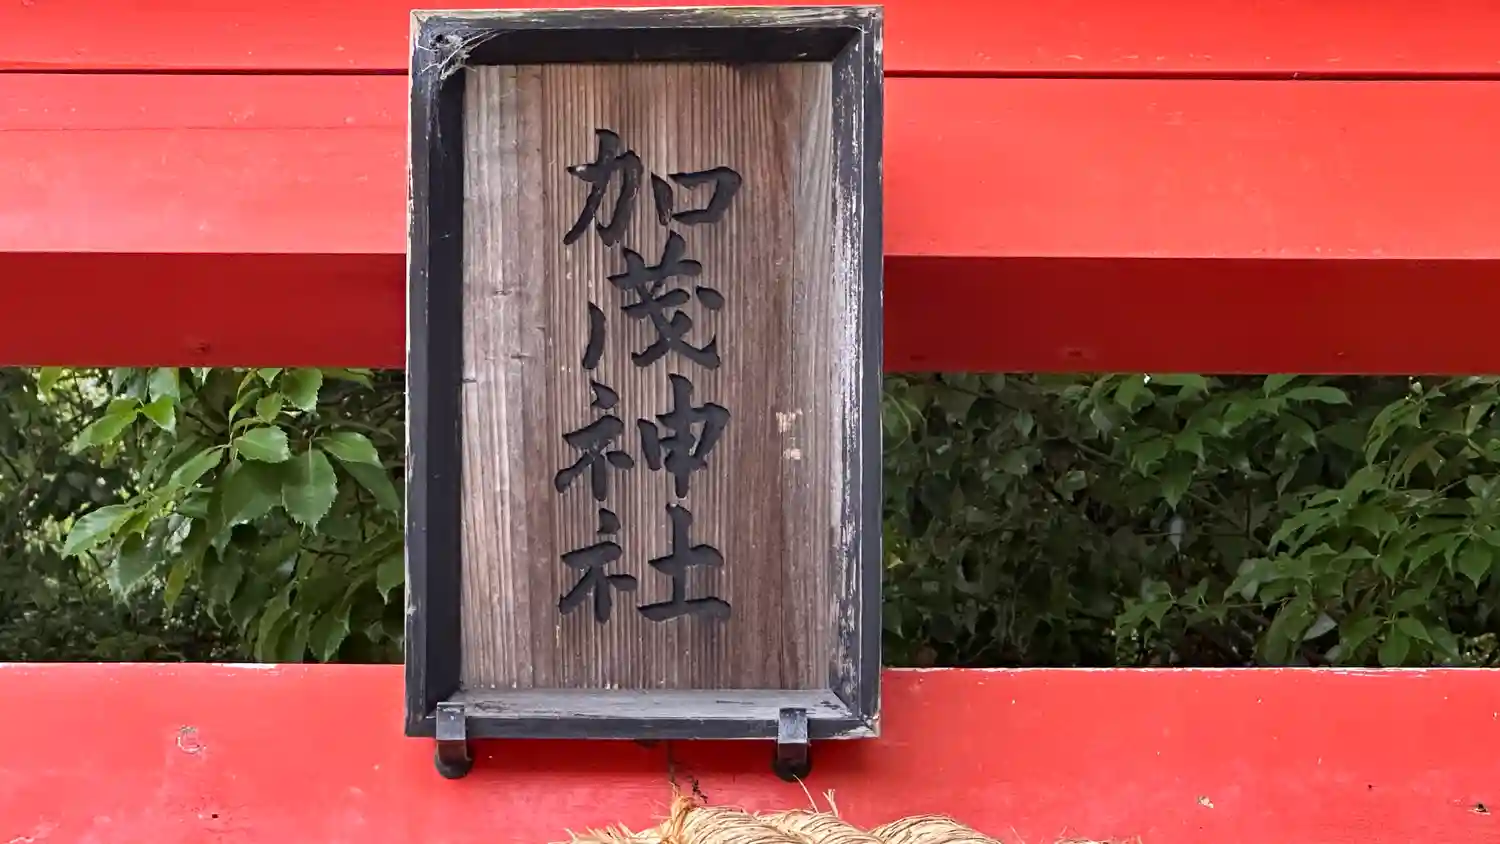 加茂神社